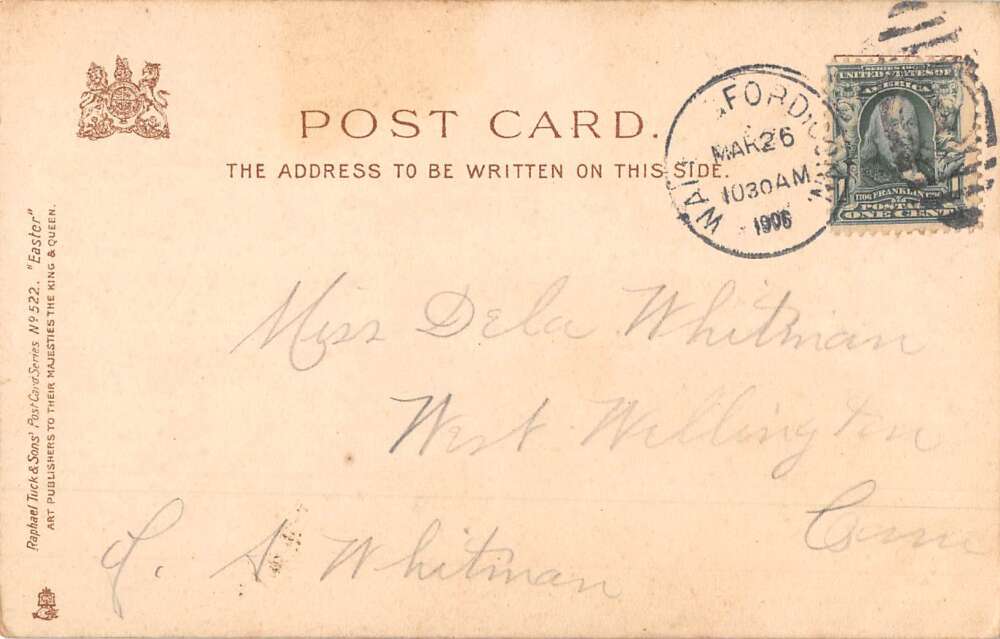 POST CARD.
THE ADDRESS TO BE WRITTEN ON THIS SIDE.
FORD
MAR 26
1030AM
1906
SERIES 1902
UNITED STATES OF
AMERICA
1706 FRANKLIN 1790
POSTAGE
ONE CENT
1 1
Raphael Tuck & Sons' Post Card Series Nº 522. "Easter"
ART PUBLISHERS TO THEIR MAJESTIES THE KING & QUEEN.
Miss Dela Whitman
West Willington
Conn
A Whitman